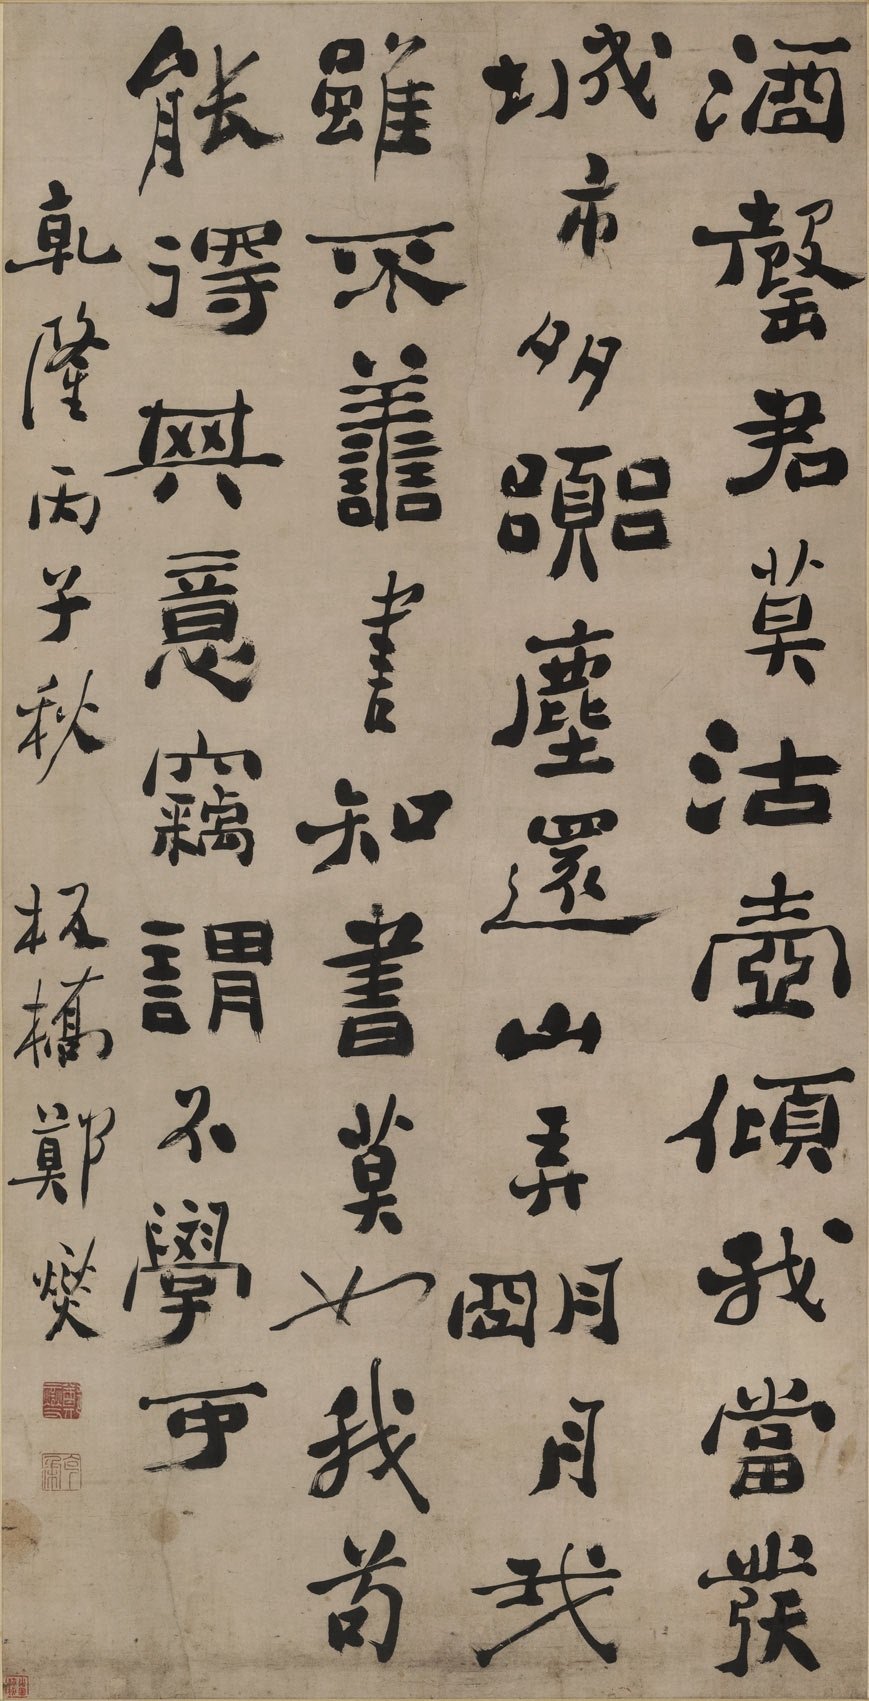 酒罄君莫沽壺傾我當發
城市多嚻塵還山弄朙月我
雖不善書知書莫如我苟
能得其意竊謂不學可
乾隆丙子秋 板橋鄭燮